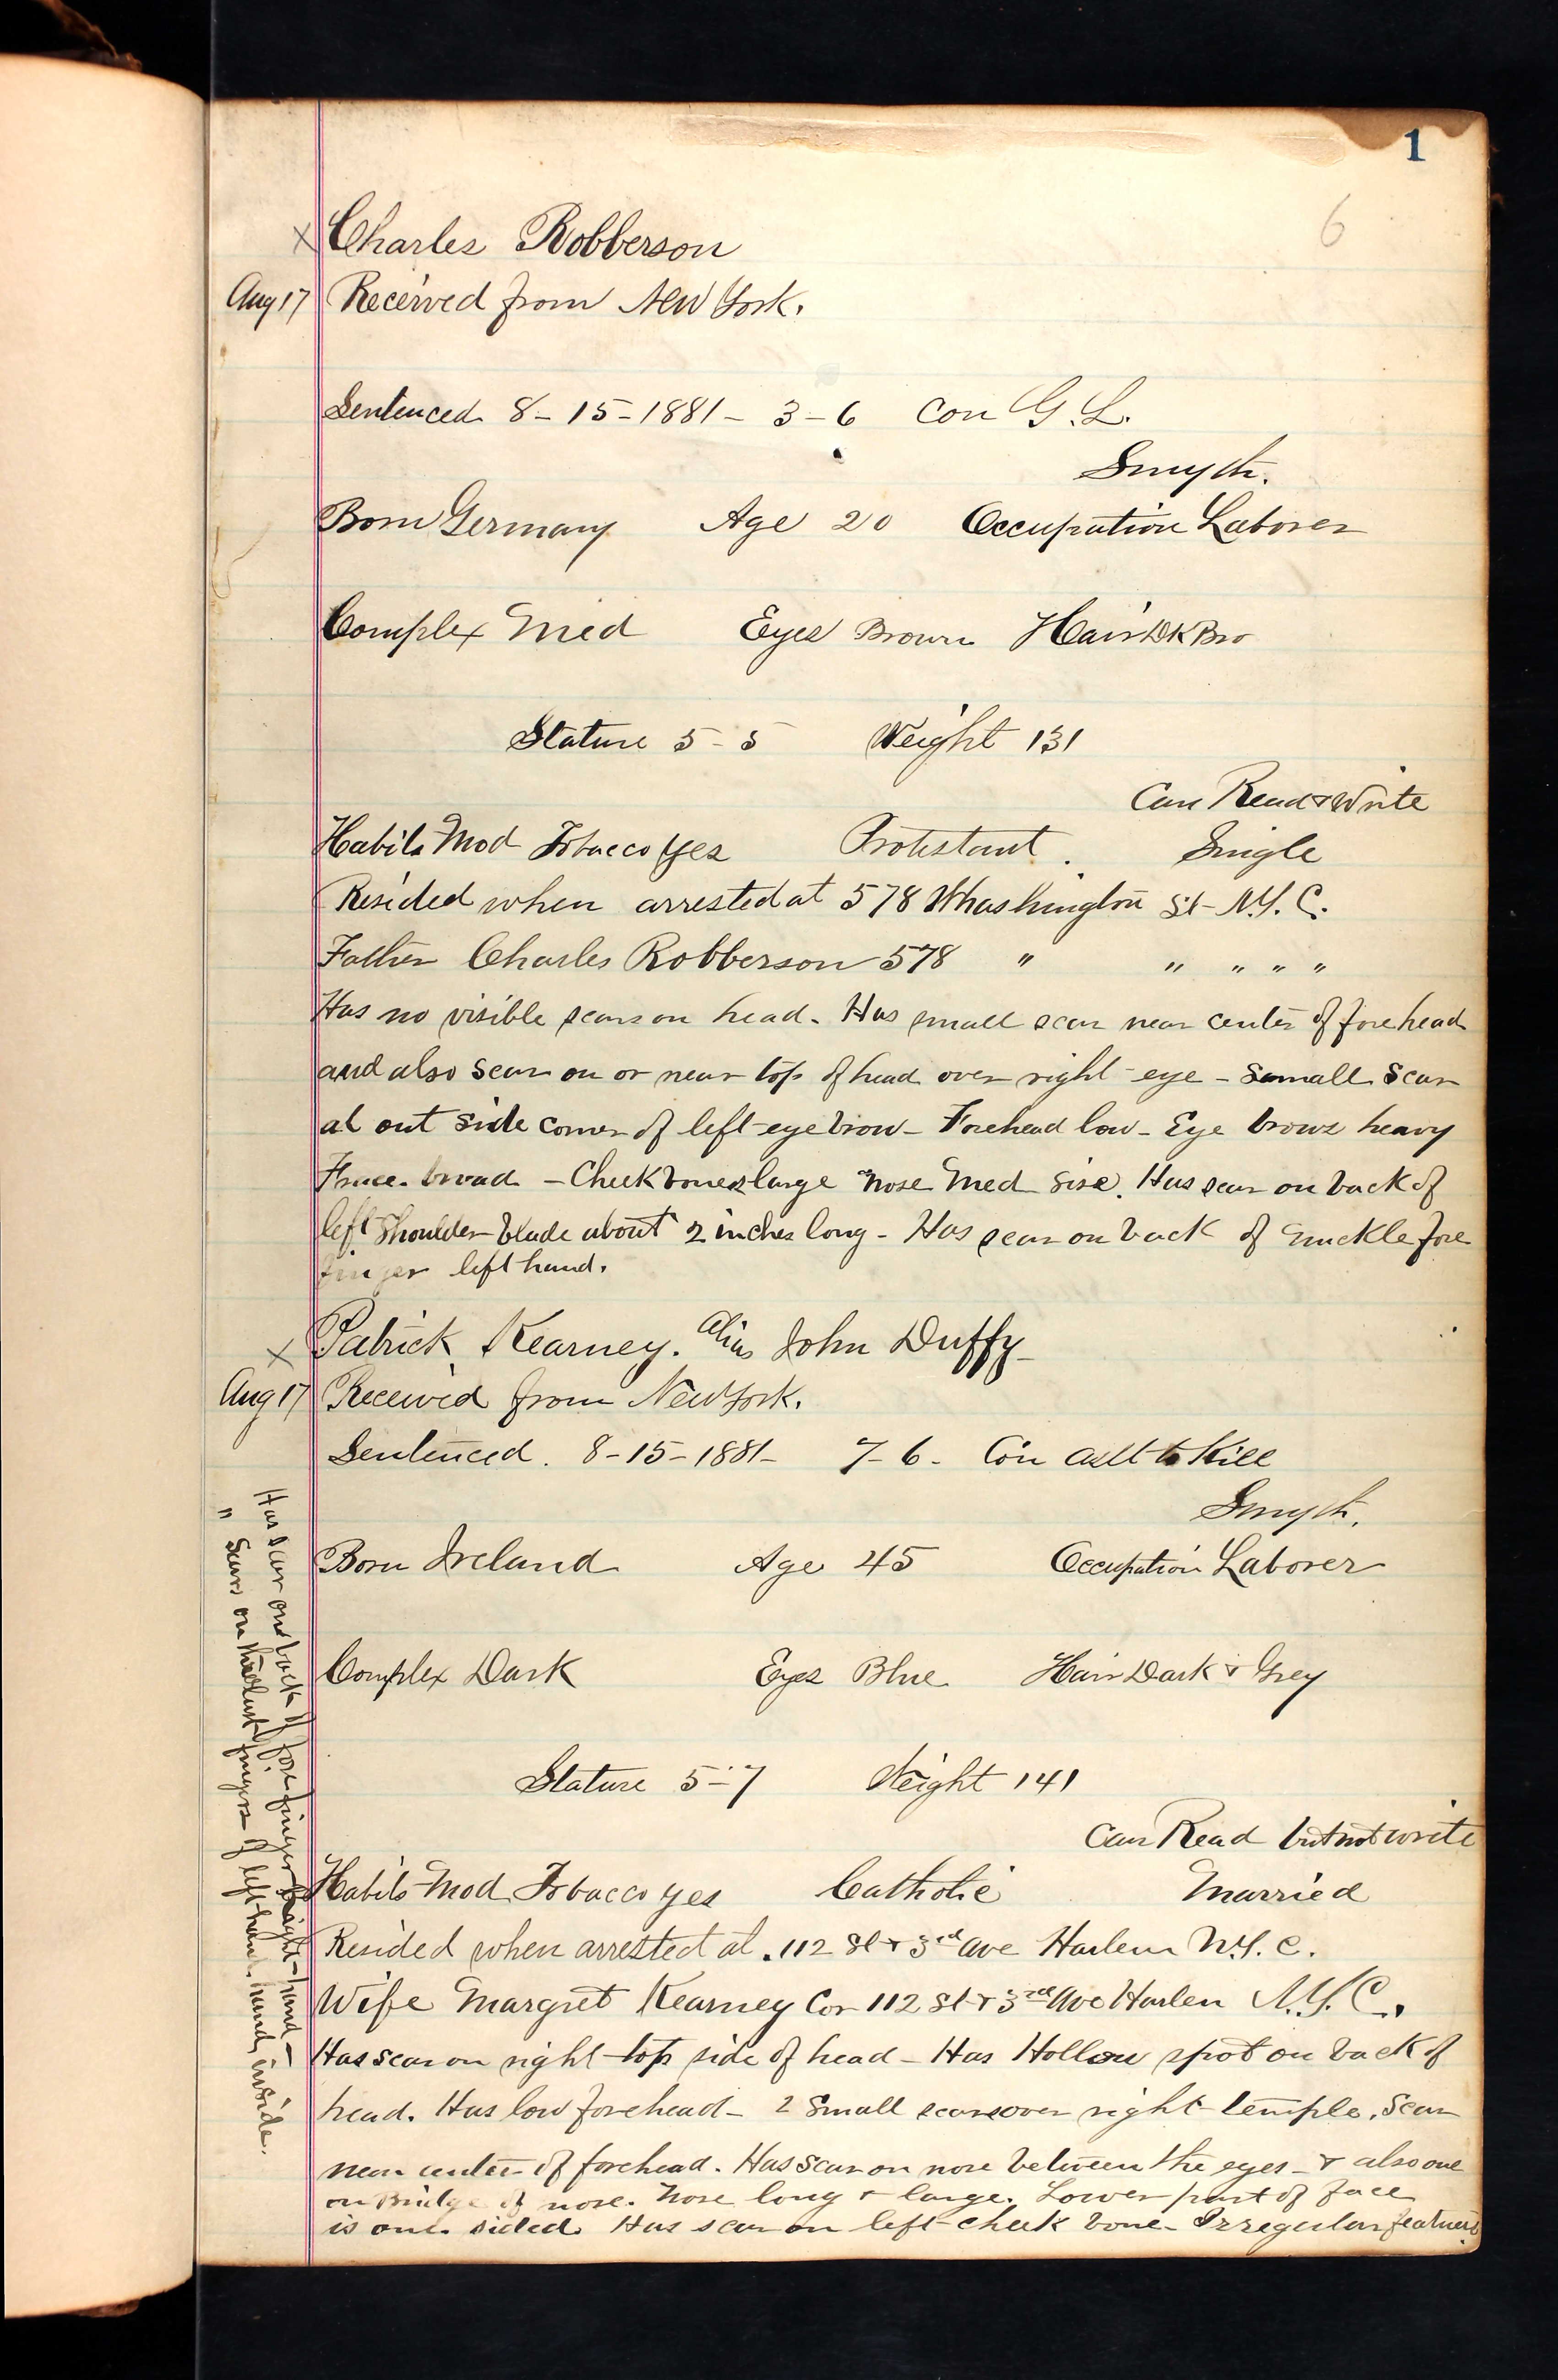 1
6
x Charles Robberson
Aug 17 Received from New York.
Sentenced 8-15-1881- 3-6 Con G. L.
Smyth.
Born Germany Age 20 Occupation Laborer
Complex Med Eyes Brown Hair DK Bro
Stature 5-5 Weight 131
Can Read & Write
Habits Mod Tobacco yes Protestant. Single
Resided when arrested at 578 Whashington St- N.Y.C.
Father Charles Robberson 578 " " " " "
Has no visible scars on head. Has small scar near center of forehead
and also scar on or near top of head over right eye - small scar
at out side corner of left eye brow - Forehead low - Eye brows heavy
Face broad - Cheek bones large nose Med size. Has scar on back of
left shoulder blade about 2 inches long - Has scar on back of nuckle fore
finger left hand.
x Patrick Kearney. Alias John Duffy-
Aug 17 Received from New York.
Sentenced. 8-15-1881- 7-6- Con aslt to Kill
Smyth.
Born Ireland Age 45 Occupation Laborer
Complex Dark Eyes Blue Hair Dark & Grey
Stature 5-7 Weight 141
Can Read but not write
Habits Mod Tobacco yes Catholic Married
Resided when arrested at. 112 St & 3rd ave Harlem N.Y.C.
Wife Margret Kearney Cor 112 St & 3rd Ave Harlen N.Y.C.
Has scar on right top side of head - Has Hollow spot on back of
head. Has low forehead - 2 small scars over right temple. Scar
near center of forehead. Has scar on nose between the eyes - & also one
on Bridge of nose. Nose long & large. Lower part of face
is one sided Has scar on left cheek bone - Irregular features.
Has scar on back of fore finger right hand -
" scars on fingers of left hand inside.